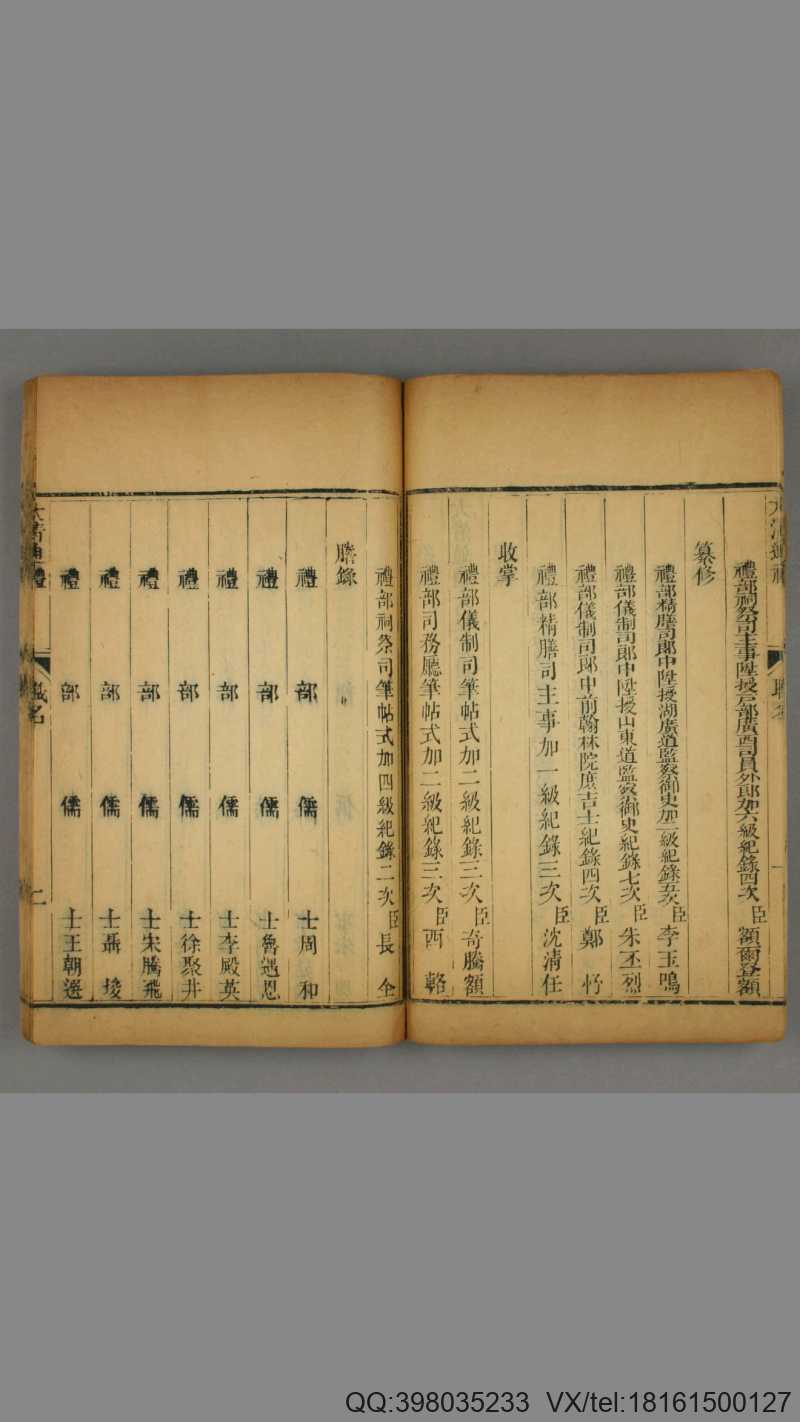 禮部祠祭司主事陞授戶部廣西司員外郎加六級紀錄四次臣額爾登額
纂修
禮部精膳司郎中陞授湖廣道監察御史加二級紀錄五次臣李玉鳴
禮部儀制司郎中陞授山東道監察御史紀錄七次臣朱丕烈
禮部儀制司郎中前翰林院庶吉士紀錄四次臣鄭忬
禮部精膳司主事加一級紀錄三次臣沈清任
收掌
禮部儀制司筆帖式加二級紀錄三次臣奇騰額
禮部司務廳筆帖式加二級紀錄三次臣西
禮部祠祭司筆帖式加四級紀錄二次臣長全
謄錄
禮部儒士周和
禮部儒士魯遇恩
禮部儒士李殿英
禮部儒士徐聚井
禮部儒士宋騰飛
禮部儒士聶埈
禮部儒士王朝選
QQ:398035233 VX/tel:18161500127